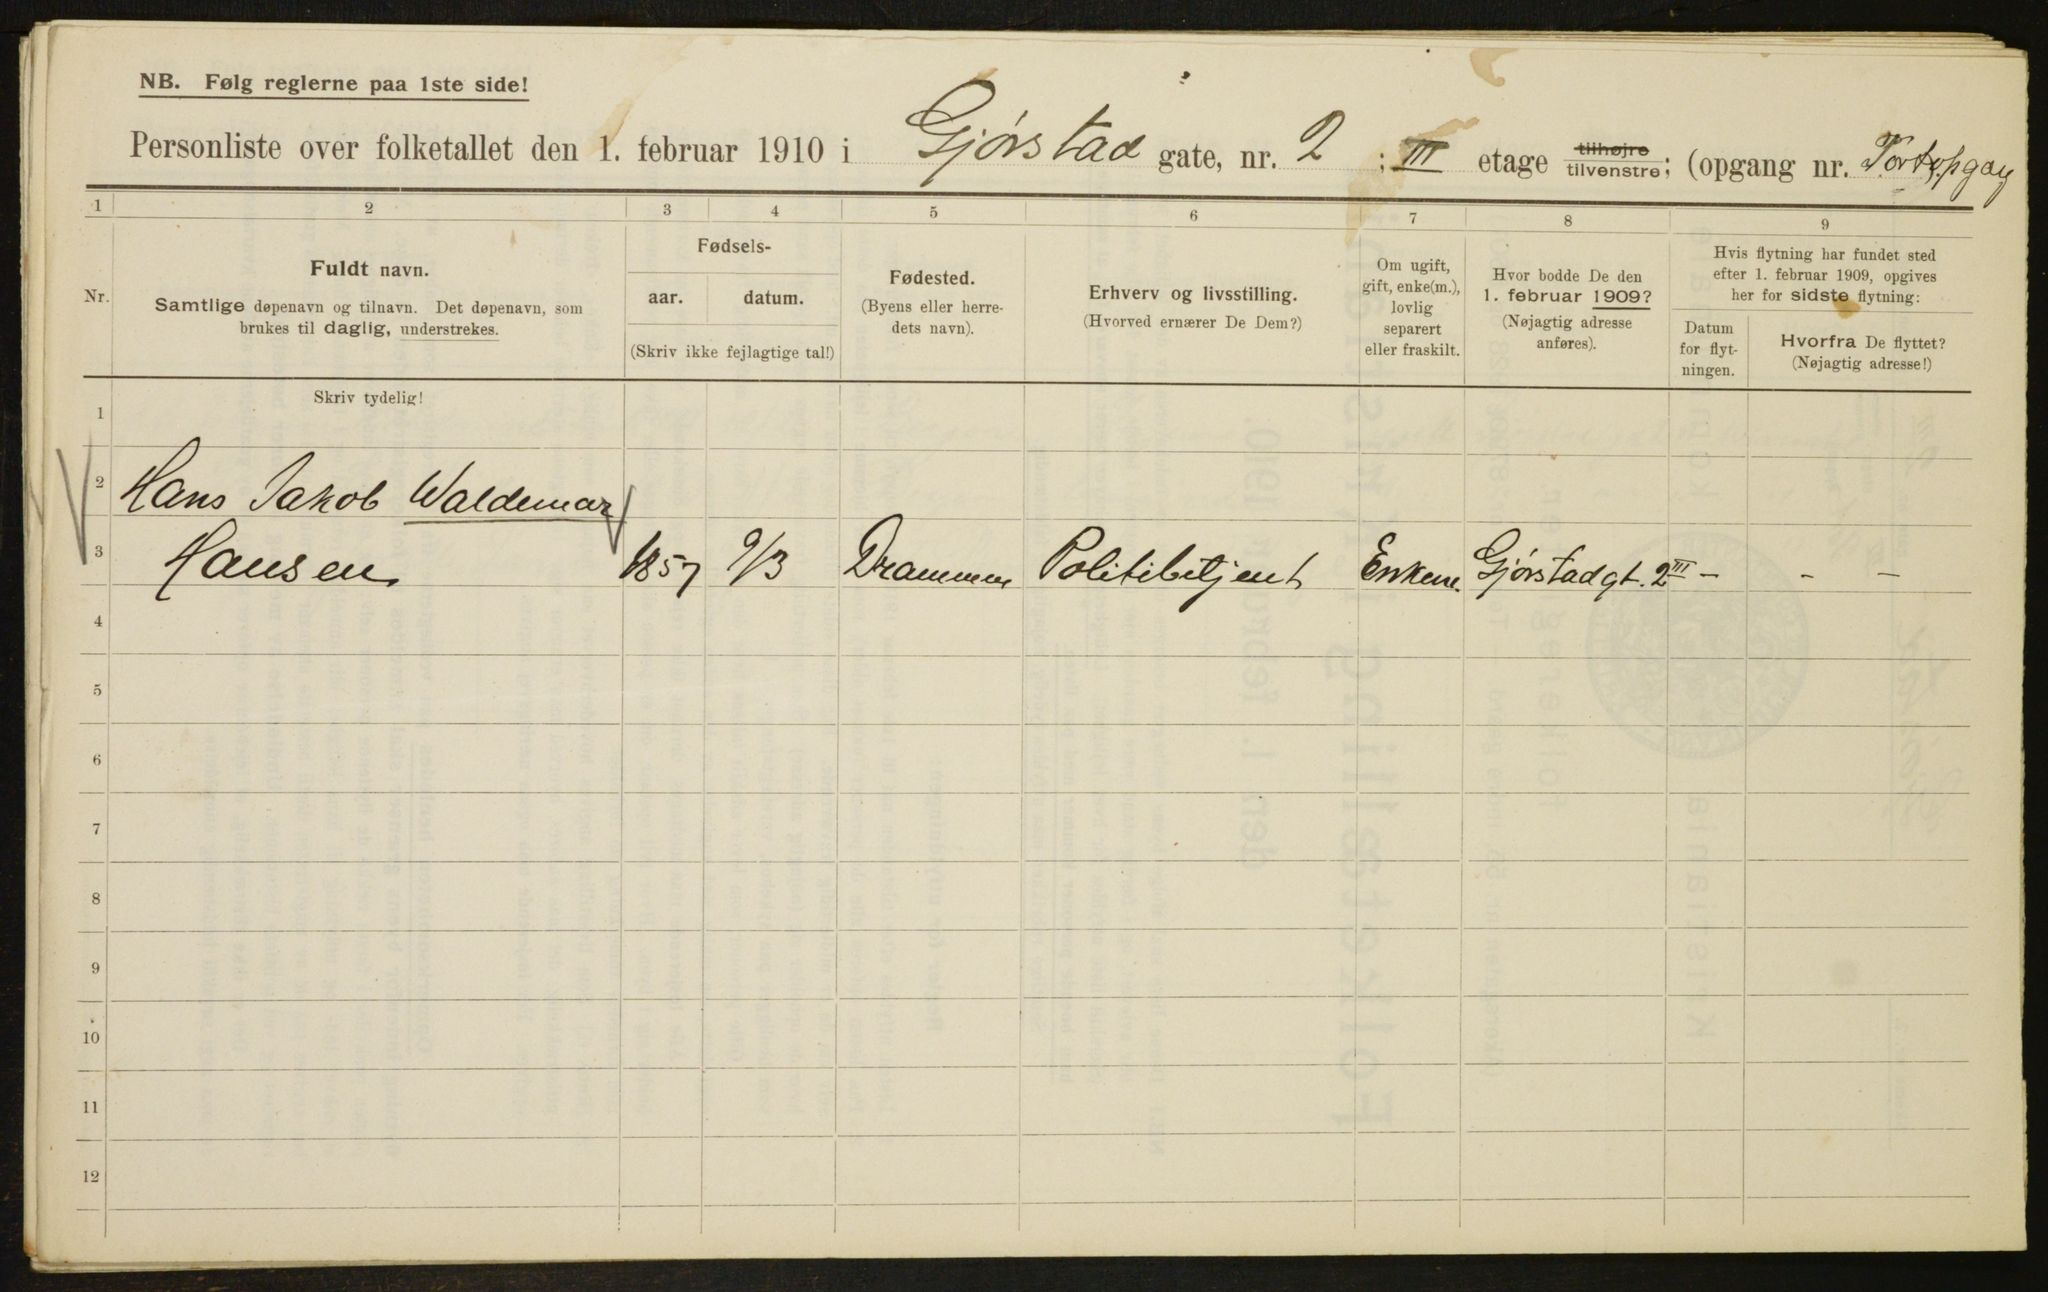 NB. Følg reglerne paa 1ste side!
Personliste over folketallet den 1. februar 1910 i Gjørstad gate, nr. 2 ; III etage tilhøjre tilvenstre; (opgang nr.
1 2 3 4 5 6 7 8 9
Nr.
Fuldt navn.
Samtlige døpenavn og tilnavn. Det døpenavn, som
brukes til daglig, understrekes.
Fødsels-
aar. datum.
(Skriv ikke fejlagtige tal!)
Fødested.
(Byens eller herre-
dets navn).
Erhverv og livsstilling.
(Hvorved ernærer De Dem?)
Om ugift,
gift, enke(m.),
lovlig
separert
eller fraskilt.
Hvor bodde De den
1. februar 1909?
(Nøjagtig adresse
anføres).
Hvis flytning har fundet sted
efter 1. februar 1909, opgives
her for sidste flytning:
Datum
for flyt-
ningen.
Hvorfra De flyttet?
(Nøjagtig adresse!)
Skriv tydelig!
1
2 Hans Jakob Waldemar
3 Hansen 1857 9/3 Drammen Politibetjent Enkem. Gjørstadgt. 2 III – – –
4
5
6
7
8
9
10
11
12